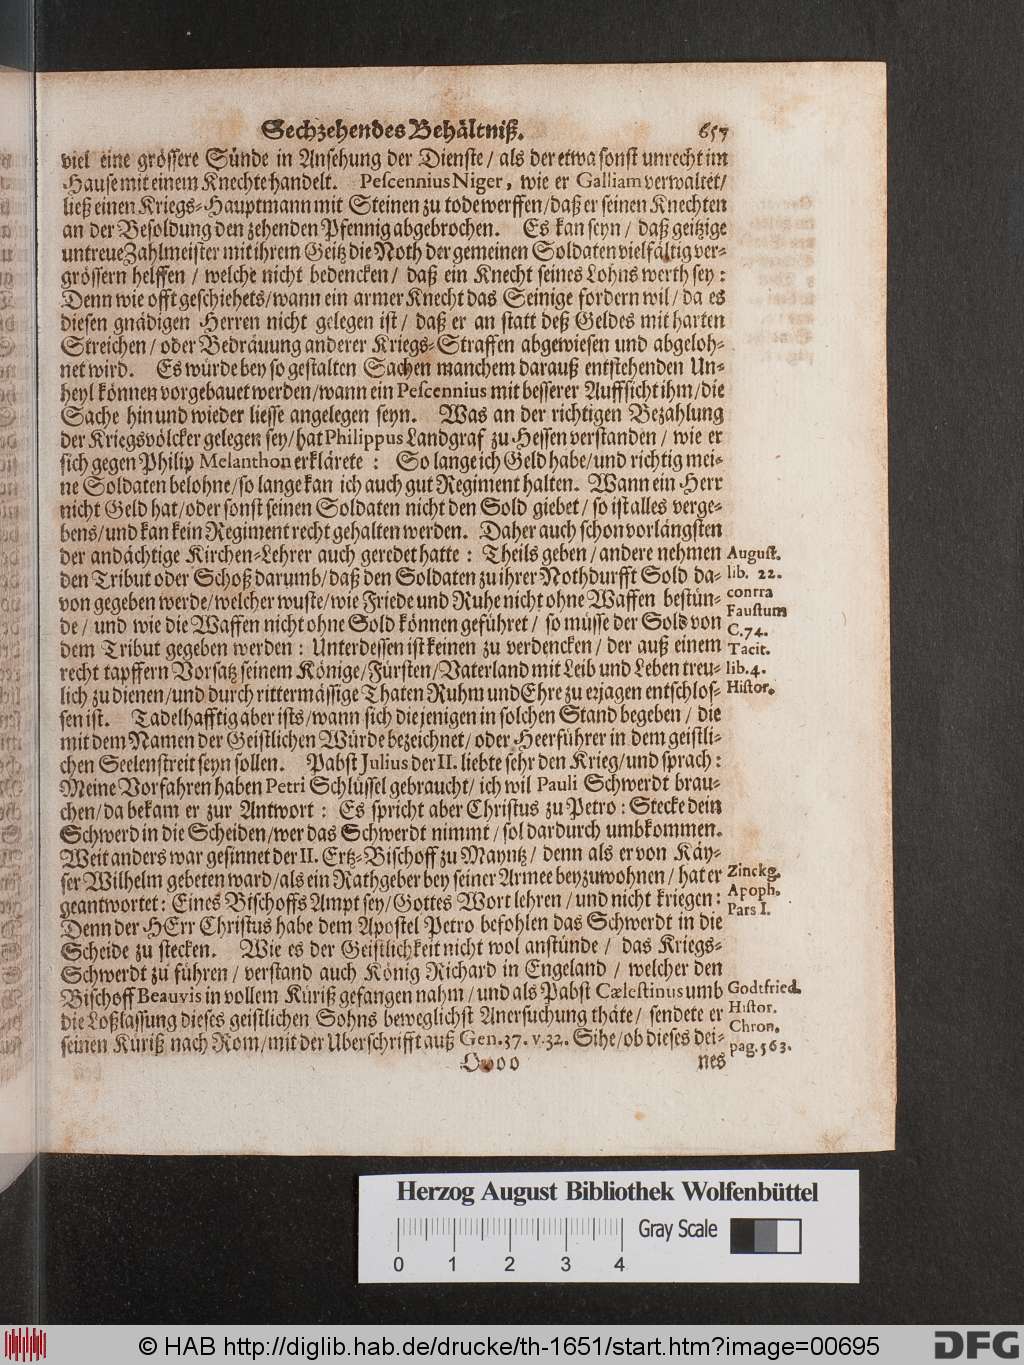 Sechzehendes Behältniß. 657
viel eine grössere Sünde in Ansehung der Dienste / als der etwa sonst unrecht im
Hause mit einem Knechte handelt. Pescennius Niger, wie er Galliam verwaltet/
ließ einen Kriegs-Hauptmann mit Steinen zu tode werffen/daß er seinen Knechten
an der Besoldung den zehenden Pfennig abgebrochen. Es kan seyn / daß geitzige
untreue Zahlmeister mit ihrem Geitz die Noth der gemeinen Soldaten vielfältig ver-
grössern helffen / welche nicht bedencken / daß ein Knecht seines Lohns werth sey :
Denn wie offt geschiehets/wann ein armer Knecht das Seinige fordern wil/ da es
diesen gnädigen Herren nicht gelegen ist / daß er an statt deß Geldes mit harten
Streichen / oder Bedräuung anderer Kriegs-Straffen abgewiesen und abgeloh-
net wird. Es würde bey so gestalten Sachen manchem darauß entstehenden Un-
heyl können vorgebauet werden/wann ein Pescennius mit besserer Auffsicht ihm/die
Sache hin und wieder liesse angelegen seyn. Was an der richtigen Bezahlung
der Kriegsvölcker gelegen sey/hat Philippus Landgraf zu Hessen verstanden / wie er
sich gegen Philip Melanthon erklärete : So lange ich Geld habe/und richtig mei-
ne Soldaten belohne/so lange kan ich auch gut Regiment halten. Wann ein Herr
nicht Geld hat/oder sonst seinen Soldaten nicht den Sold giebet/ so ist alles verge-
bens/und kan kein Regiment recht gehalten werden. Daher auch schon vorlängsten
der andächtige Kirchen-Lehrer auch geredet hatte : Theils geben / andere nehmen
den Tribut oder Schoß darumb/daß den Soldaten zu ihrer Nothdurfft Sold da-
von gegeben werde/welcher wuste/wie Friede und Ruhe nicht ohne Waffen bestün-
de / und wie die Waffen nicht ohne Sold können geführet / so müsse der Sold von
dem Tribut gegeben werden : Unterdessen ist keinen zu verdencken / der auß einem
recht tapffern Vorsatz seinem Könige/Fürsten/Vaterland mit Leib und Leben treu-
lich zu dienen/und durch rittermässige Thaten Ruhm und Ehre zu erjagen entschlos-
sen ist. Tadelhafftig aber ists/wann sich diejenigen in solchen Stand begeben / die
mit dem Namen der Geistlichen Würde bezeichnet/ oder Heerführer in dem geistli-
chen Seelenstreit seyn sollen. Pabst Julius der II. liebte sehr den Krieg/und sprach:
Meine Vorfahren haben Petri Schlüssel gebraucht/ ich wil Pauli Schwerdt brau-
chen/da bekam er zur Antwort : Es spricht aber Christus zu Petro : Stecke dein
Schwerd in die Scheiden/wer das Schwerdt nimmt / sol dardurch umbkommen.
Weit anders war gesinnet der II. Ertz-Bischoff zu Mayntz/ denn als er von Käy-
ser Wilhelm gebeten ward/als ein Rathgeber bey seiner Armee beyzuwohnen / hat er
geantwortet: Eines Bischoffs Ampt sey/Gottes Wort lehren / und nicht kriegen:
Denn der HErr Christus habe dem Apostel Petro befohlen das Schwerdt in die
Scheide zu stecken. Wie es der Geistlichkeit nicht wol anstünde / das Kriegs-
Schwerdt zu führen / verstand auch König Richard in Engeland / welcher den
Bischoff Beauvis in vollem Küriß gefangen nahm / und als Pabst Cælestinus umb
die Loßlassung dieses geistlichen Sohns beweglichst Anersuchung thäte/ sendete er
seinen Küriß nach Rom/mit der Uberschrifft auß Gen. 37. v. 32. Sihe/ob dieses dei-
Oooo nes
August.
lib. 22.
contra
Faustum
C. 74.
Tacit.
lib. 4.
Histor.
Zinckg.
Apoph.
Pars I.
Godtfried.
Histor.
Chron.
pag. 563.
Herzog August Bibliothek Wolfenbüttel
Gray Scale
0 1 2 3 4
© HAB http://diglib.hab.de/drucke/th-1651/start.htm?image=00695
DFG